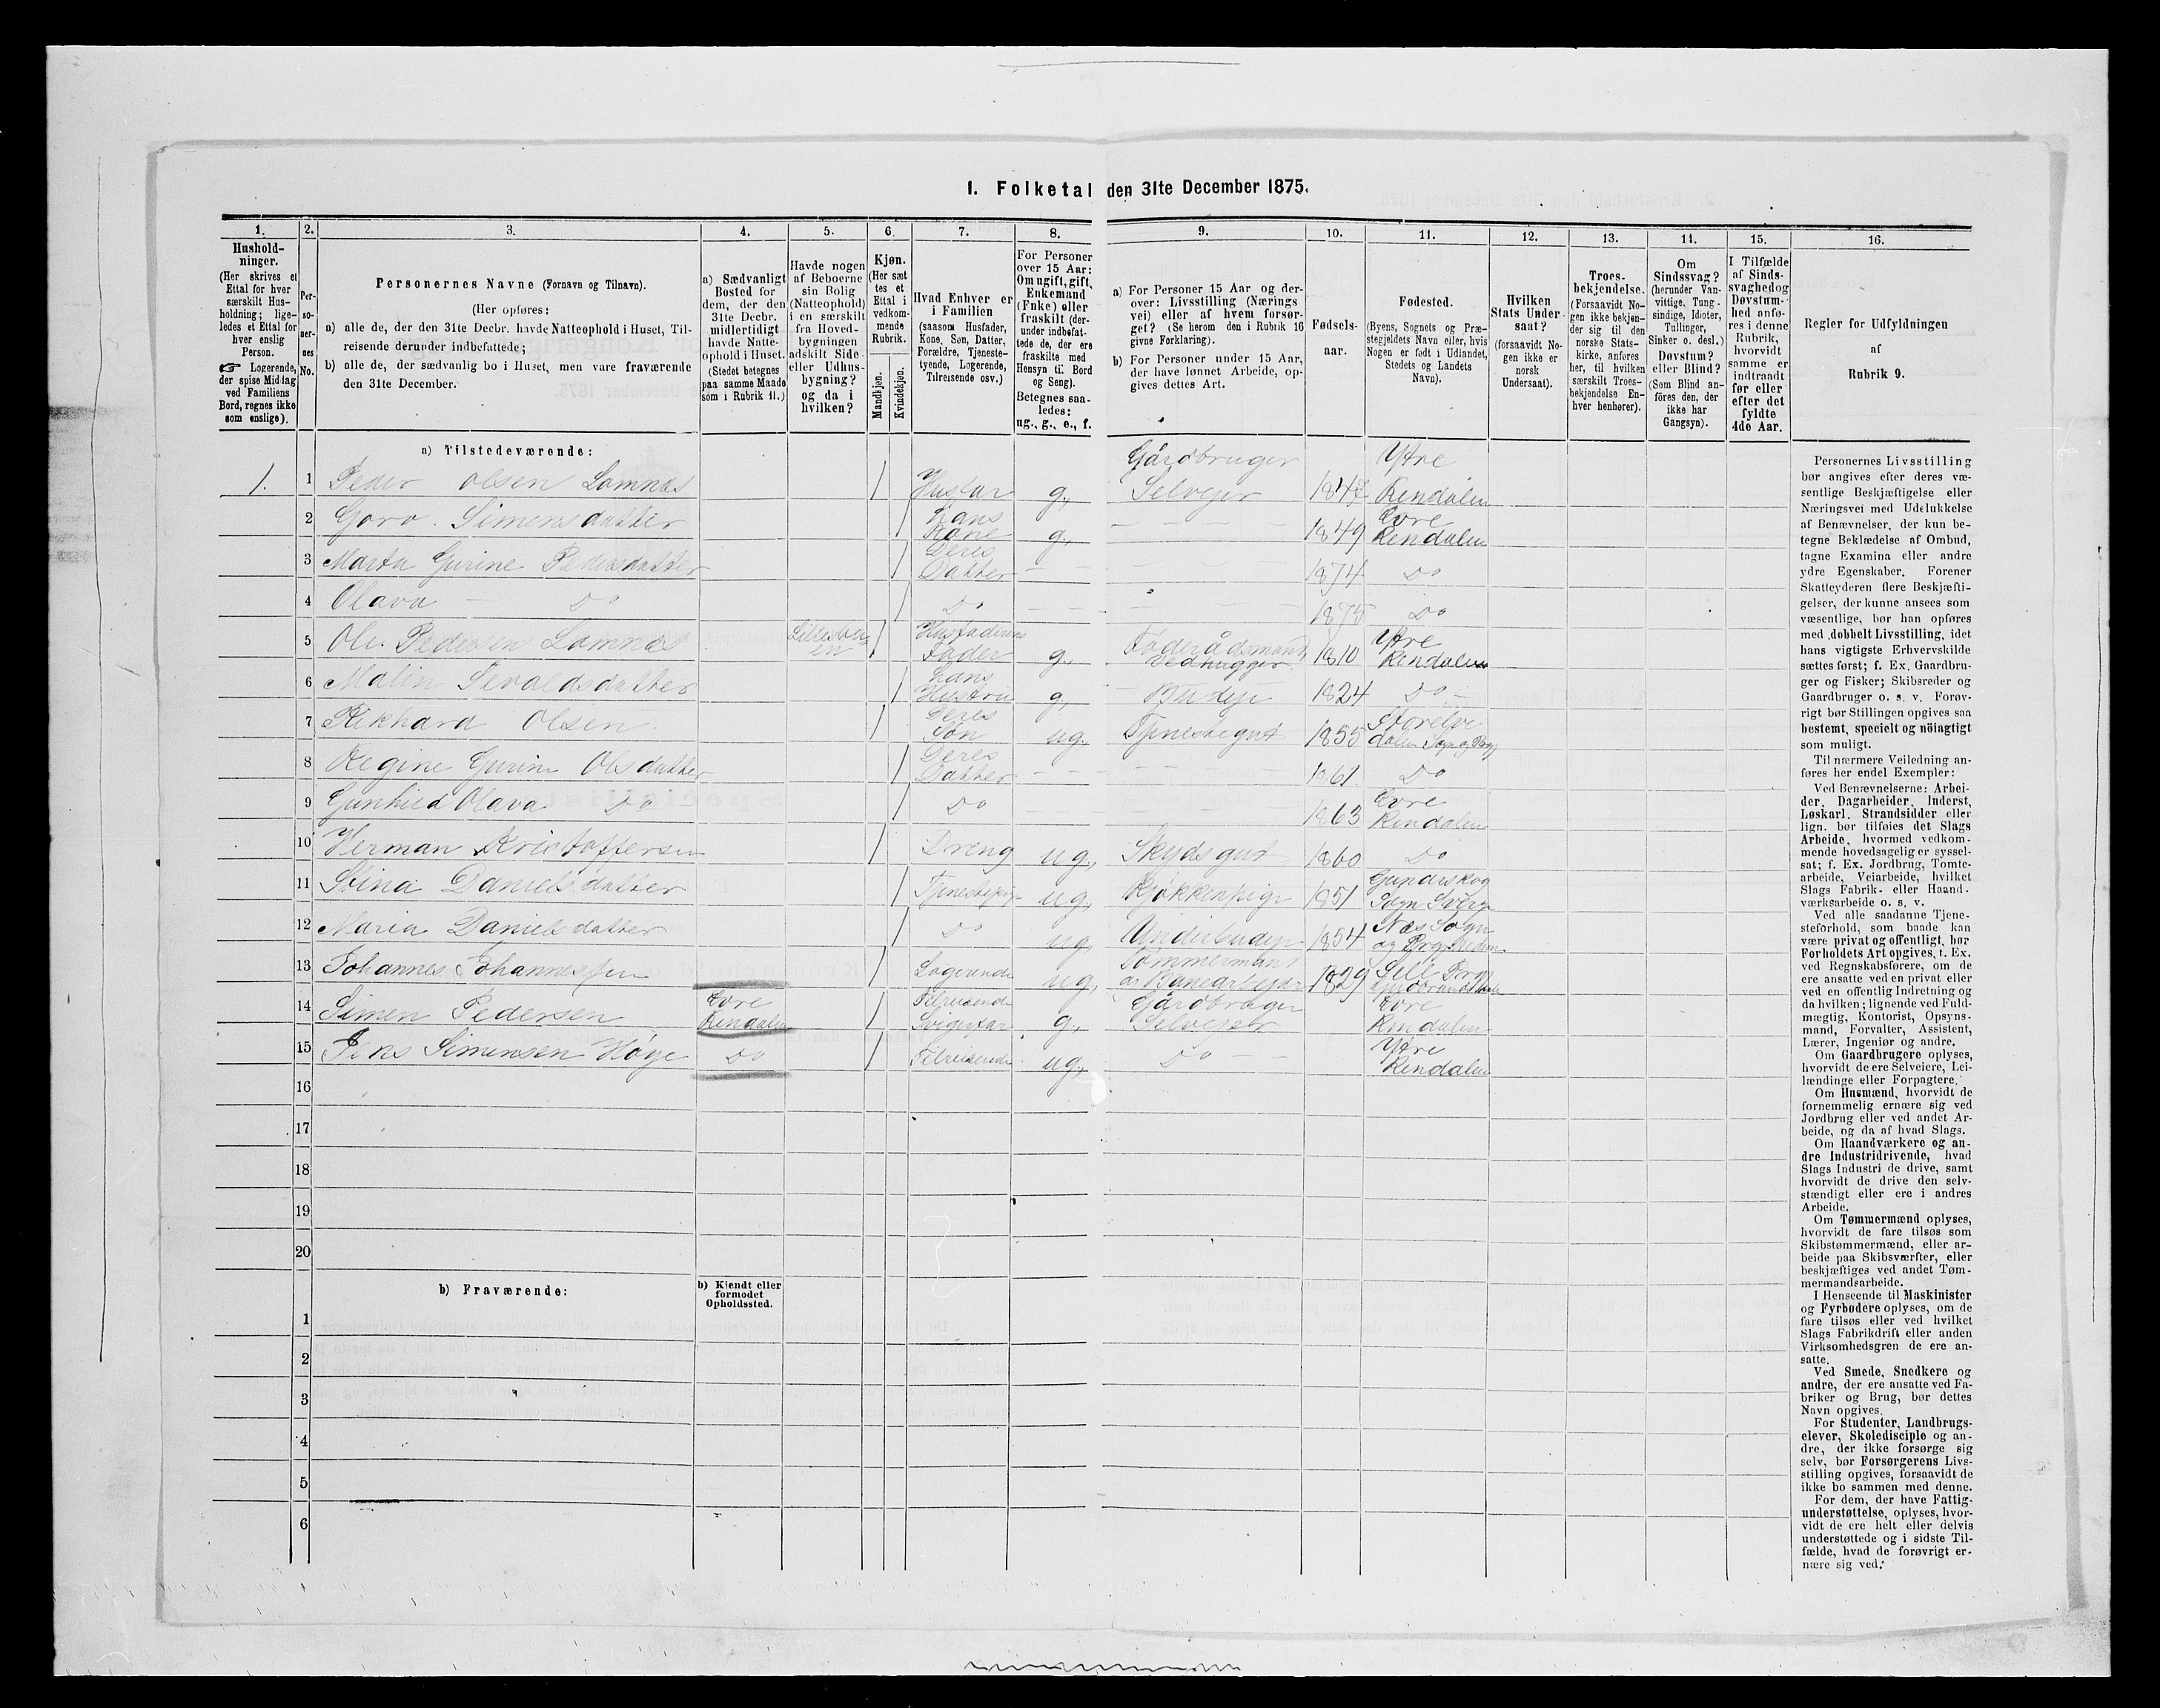 I. Folketal den 31te December 1875.
1.
Hushold-
ninger.
(Her skrives et
Ettal for hver
særskilt Hus-
holdning; lige-
ledes et Ettal for
hver enslig
Person.
☞ Logerende,
der spise Middag
ved Familiens
Bord, regnes ikke
som enslige).
2.
Per-
so-
ner-
nes
No.
3.
Personernes Navne (Fornavn og Tilnavn).
(Her opføres:
a) alle de, der den 31te Decbr. havde Natteophold i Huset, Til-
reisende derunder indbefattede;
b) alle de, der sædvanlig bo i Huset, men vare fraværende
den 31te December.
4.
a) Sædvanligt
Bosted for
dem, der den
31te Decbr.
midlertidigt
havde Natte-
ophold i Huset.
(Stedet betegnes
paa samme Maade
som i Rubrik 11.)
5.
Havde nogen
af Beboerne
sin Bolig
(Natteophold)
i en særskilt
fra Hoved-
bygningen
adskilt Side-
eller Udhus-
bygning?
og da i
hvilken?
6.
Kjøn.
(Her sæt-
tes et
Ettal i
vedkom-
mende
Rubrik.
Mandkjøn.
Kvindekjøn.
7.
Hvad Enhver er
i Familien
(saasom Husfader,
Kone, Søn, Datter,
Forældre, Tjeneste-
tyende, Logerende,
Tilreisende osv.)
8.
For Personer
over 15 Aar:
Om ugift, gift,
Enkemand
(Enke) eller
fraskilt (der-
under indbefat-
tede de, der ere
fraskilte med
Hensyn til Bord
og Seng).
Betegnes saa-
ledes:
ug., g., e., f.
9.
a) For Personer 15 Aar og der-
over: Livsstilling (Nærings
vei) eller af hvem forsør-
get? (Se herom den i Rubrik 16
givne Forklaring).
b) For Personer under 15 Aar,
der have lønnet Arbeide, op-
gives dettes Art.
10.
Fødsels-
aar.
11.
Fødested.
(Byens, Sognets og Præ-
stegjeldets Navn eller, hvis
Nogen er født i Udlandet,
Stedets og Landets
Navn).
12.
Hvilken
Stats Under-
saat?
(forsaavidt No-
gen ikke er
norsk
Undersaat).
13.
Troes-
bekjendelse.
(Forsaavidt No-
gen ikke bekjen-
der sig til den
norske Stats-
kirke, anføres
her, til hvilken
særskilt Troes-
bekjendelse En-
hver henhører).
14.
Om
Sindssvag?
(herunder Van-
vittige, Tung-
sindige, Idioter,
Tullinger,
Sinker o. desl.)
Døvstum?
eller Blind?
(Som Blind an-
føres den, der
ikke har
Gangsyn).
15.
I Tilfælde
af Sinds-
svaghed og
Døvstum-
hed anfø-
res i denne
Rubrik,
hvorvidt
samme er
indtraadt
før eller
efter det
fyldte
4de Aar.
16.
Regler for Udfyldningen
af
Rubrik 9.
a) Tilstedeværende:
1. 1 Peder Olsen Lomnæs 1 Husfar g., Gårdbruger Selvejer 1847 Ytre Rendalen
2 Goro Simensdatter 1 Hans Kone g., 1849 Evre Rendalen
3 Marta Gurine Pedersdatter 1 Deres Datter 1874 Do
4 Olava Do 1 Do 1875 Do
5 Ole Pedersen Lomnæs 1 Husfaderens Fader g., Føderådsmand Vedhugger 1810 Ytre Rendalen
6 Malin Sevaldsdatter 1 Hans Hustru g., Budeje 1824 Do
7 Rikhard Olsen 1 Deres Søn ug. Tjenestegut 1855 Storelvdalen Sogn og Prgj
8 Regine Gurine Olsdatter 1 Deres Datter 1861 Do
9 Gunhild Olava Do 1 Do 1863 Evre Rendalen
10 Herman Kristoffersen 1 Dreng ug., Skydsgut 1860 Do
11 Stina Danielsdatter 1 Tjenestepige ug., Kjøkkenpige 1851 Gunderskog Sogn Sverge
12 Maria Danielsdatter 1 Do ug., Underbudeje 1854 Næs Sogn og
13 Johannes Johannessen 1 Logerende ug., Tømmermand og Banearbejder 1829
14 Simen Pedersen Evre Rendalen 1 Tilreisende Svigerfar g., Gårdbruger Selvejer Evre Rendalen
15 Simensen Høye Do 1 Tilreisende ug., Do Ytre Rendalen
16
17
18
19
20
b) Fraværende:
b) Kjendt eller
formodet
Opholdssted.
1
2
3
4
5
6
Personernes Livsstilling
bør angives efter deres væ-
sentlige Beskjæftigelse eller
Næringsvei med Udelukkelse
af Benævnelser, der kun be-
tegne Beklædelse af Ombud,
tagne Examina eller andre
ydre Egenskaber. Forener
Skatteyderen flere Beskjæfti-
gelser, der kunne ansees som
væsentlige, bør han opføres
med dobbelt Livsstilling, idet
hans vigtigste Erhvervskilde
sættes først; f. Ex. Gaardbru-
ger og Fisker; Skibsreder og
Gaardbruger o. s. v. Forøv-
rigt bør Stillingen opgives saa
bestemt, specielt og nöiagtigt
som muligt.
Til nærmere Veiledning an-
føres her endel Exempler:
Ved Benævnelserne: Arbei-
der, Dagarbeider, Inderst,
Løskarl, Strandsidder eller
lign. bør tilføies det Slags
Arbeide, hvormed vedkom-
mende hovedsagelig er syssel-
sat; f. Ex. Jordbrug, Tomte-
arbeide, Veiarbeide, hvilket
Slags Fabrik- eller Haand-
værksarbeide o. s. v.
Ved alle saadanne Tjene-
steforhold, som baade kan
være privat og offentligt, bør
Forholdets Art opgives, t. Ex.
ved Regnskabsførere, om de
ere ansatte ved en privat eller
ved en offentlig Indretning og
da hvilken; lignende ved Fuld-
mægtig, Kontorist, Opsyns-
mand, Forvalter, Assistent,
Lærer, Ingeniør og andre.
Om Gaardbrugere oplyses,
hvorvidt de ere Selveiere, Lei-
lændinge eller Forpagtere.
Om Husmænd, hvorvidt de
fornemmelig ernære sig ved
Jordbrug eller ved andet Ar-
beide, og da af hvad Slags.
Om Haandværkere og an-
dre Industridrivende, hvad
Slags Industri de drive, samt
hvorvidt de drive den selv-
stændigt eller ere i andres
Arbeide.
Om Tømmermænd oplyses,
hvorvidt de fare tilsøs som
Skibstømmermænd, eller ar-
beide paa Skibsværfter, eller
beskjæftiges ved andet Tøm-
mermandsarbeide.
I Henseende til Maskinister
og Fyrbødere oplyses, om de
fare tilsøs eller ved hvilket
Slags Fabrikdrift eller anden
Virksomhedsgren de ere an-
satte.
Ved Smede, Snedkere og
andre, der ere ansatte ved Fa-
briker og Brug, bør dettes
Navn opgives.
For Studenter, Landbrugs-
elever, Skoledisciple og an-
dre, der ikke forsørge sig
selv, bør Forsørgerens Livs-
stilling opgives, forsaavidt de
ikke bo sammen med denne.
For dem, der have Fattig-
understøttelse, oplyses, hvor-
vidt de ere helt eller delvis
understøttede og i sidste Til-
fælde, hvad de forøvrigt er-
nære sig ved.